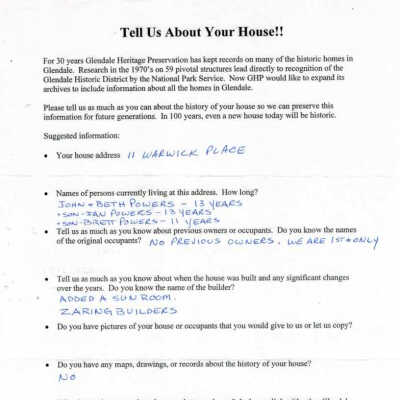 Tell Us About Your House!!
For 30 years Glendale Heritage Preservation has kept records on many of the historic homes in
Glendale. Research in the 1970's on 59 pivotal structures lead directly to recognition of the
Glendale Historic District by the National Park Service. Now GHP would like to expand its
archives to include information about all the homes in Glendale.
Please tell us as much as you can about the history of your house so we can preserve this
information for future generations. In 100 years, even a new house today will be historic.
Suggested information:
• Your house address 11 WARWICK PLACE
• Names of persons currently living at this address. How long?
JOHN + BETH POWERS - 13 YEARS
+SON-IAN POWERS - 13 YEARS
+SON-BRETT POWERS - 11 YEARS
• Tell us as much as you know about previous owners or occupants. Do you know the names
of the original occupants? NO PREVIOUS OWNERS. WE ARE 1ST + ONLY
• Tell us as much as you know about when the house was built and any significant changes
over the years. Do you know the name of the builder?
ADDED A SUNROOM.
ZARING BUILDERS
• Do you have pictures of your house or occupants that you would give to us or let us copy?
• Do you have any maps, drawings, or records about the history of your house?
NO